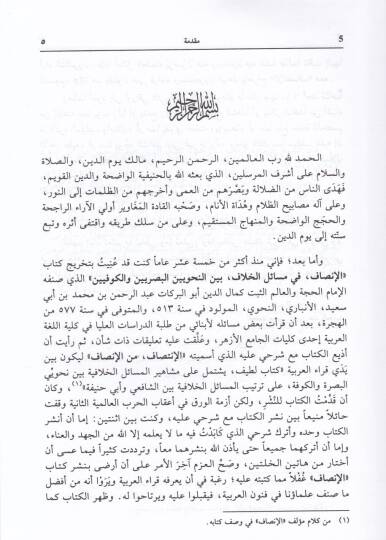 5 مقدمة ٥
بسم الله الرحمن الرحيم
الحمد لله رب العالمين، الرحمن الرحيم، مالك يوم الدين، والصلاة
والسلام على أشرف المرسلين، الذي بعثه الله بالحنيفية الواضحة والدين القويم،
فَهَدَى الناس من الضلالة وبَصَّرَهم من العمى وأخرجهم من الظلمات إلى النور،
وعلى آله مصابيح الظلام وهُدَاة الأنام، وصَحْبه القادة المَغَاوير أولي الآراء الراجحة
والحجج الواضحة والمنهاج المستقيم، وعلى من سلك طريقه واقتفى أثره وتبع
سنَّته إلى يوم الدين.
وأما بعد؛ فإني منذ أكثر من خمسة عشر عاماً كنت قد عُنِيتُ بتخريج كتاب
«الإنصاف، في مسائل الخلاف، بين النحويين البصريين والكوفيين» الذي صنفه
الإمام الحجة والعالم الثبت كمال الدين أبو البركات عبد الرحمن بن محمد بن أبي
سعيد، الأنباري، النحوي، المولود في سنة ٥١٣، والمتوفى في سنة ٥٧٧ من
الهجرة، بعد أن قرأت بعض مسائله لأبنائي من طلبة الدراسات العليا في كلية اللغة
العربية إحدى كليات الجامع الأزهر، وعلَّقت عليه تعليقات ذات شأن، ثم رأيت أن
أذيع الكتاب مع شرحي عليه الذي أسميته «الإنتصاف، من الإنصاف» ليكون بين
يَدَي قراء العربية «كتاب لطيف، يشتمل على مشاهير المسائل الخلافية بين نحويِّي
البصرة والكوفة، على ترتيب المسائل الخلافية بين الشافعي وأبي حنيفة»(١)، وكان
أن قَدَّمْتُ الكتاب للنَّشْر، ولكن أزمة الورق في أعقاب الحرب العالمية الثانية وقفت
حائلاً منيعاً بين نشر الكتاب مع شرحي عليه، وكنت بين اثنتين: إما أن أنشر
الكتاب وحده وأترك شرحي الذي كَابَدْتُ فيه ما لا يعلمه إلا الله من الجهد والعناء،
وإما أن أتركهما جميعاً حتى يأذن الله بنشرهما معاً، وترددت كثيراً فيما عسى أن
أختار من هاتين الخلتين، وصَحَّ العزم آخِرَ الأمر على أن أرضى بنشر كتاب
«الإنصاف» غُفْلاً مما كتبته عليه؛ رغبة في أن يعرفه قراء العربية ويَرَوْا أنه من أفضل
ما صنف علماؤنا في فنون العربية، فيقبلوا عليه ويرتاحوا له. وظهر الكتاب كما
(١) من كلام مؤلف «الإنصاف» في وصف كتابه.